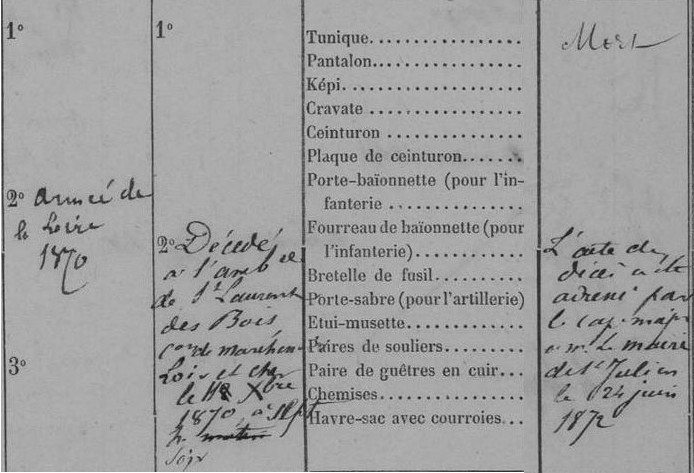 1º
2º Armée de
la Loire
1870
3º
1º
2º Décédé
à l'amb ce
de St Laurent
des Bois
con de marchen
Loir et cher
le 18 Xbre
1870, à sept
h. matin
soir
Tunique
Pantalon
Képi
Cravate
Ceinturon
Plaque de ceinturon
Porte-baïonnette (pour l'in-
fanterie
Fourreau de baïonnette (pour
l'infanterie)
Bretelle de fusil
Porte-sabre (pour l'artillerie)
Etui-musette
Paires de souliers
Paire de guêtres en cuir
Chemises
Havre-sac avec courroies
Mort
L'acte de
décès a été
adressé par
le cap. major
a mr. le maire
de St Julien
le 24 juin
1872